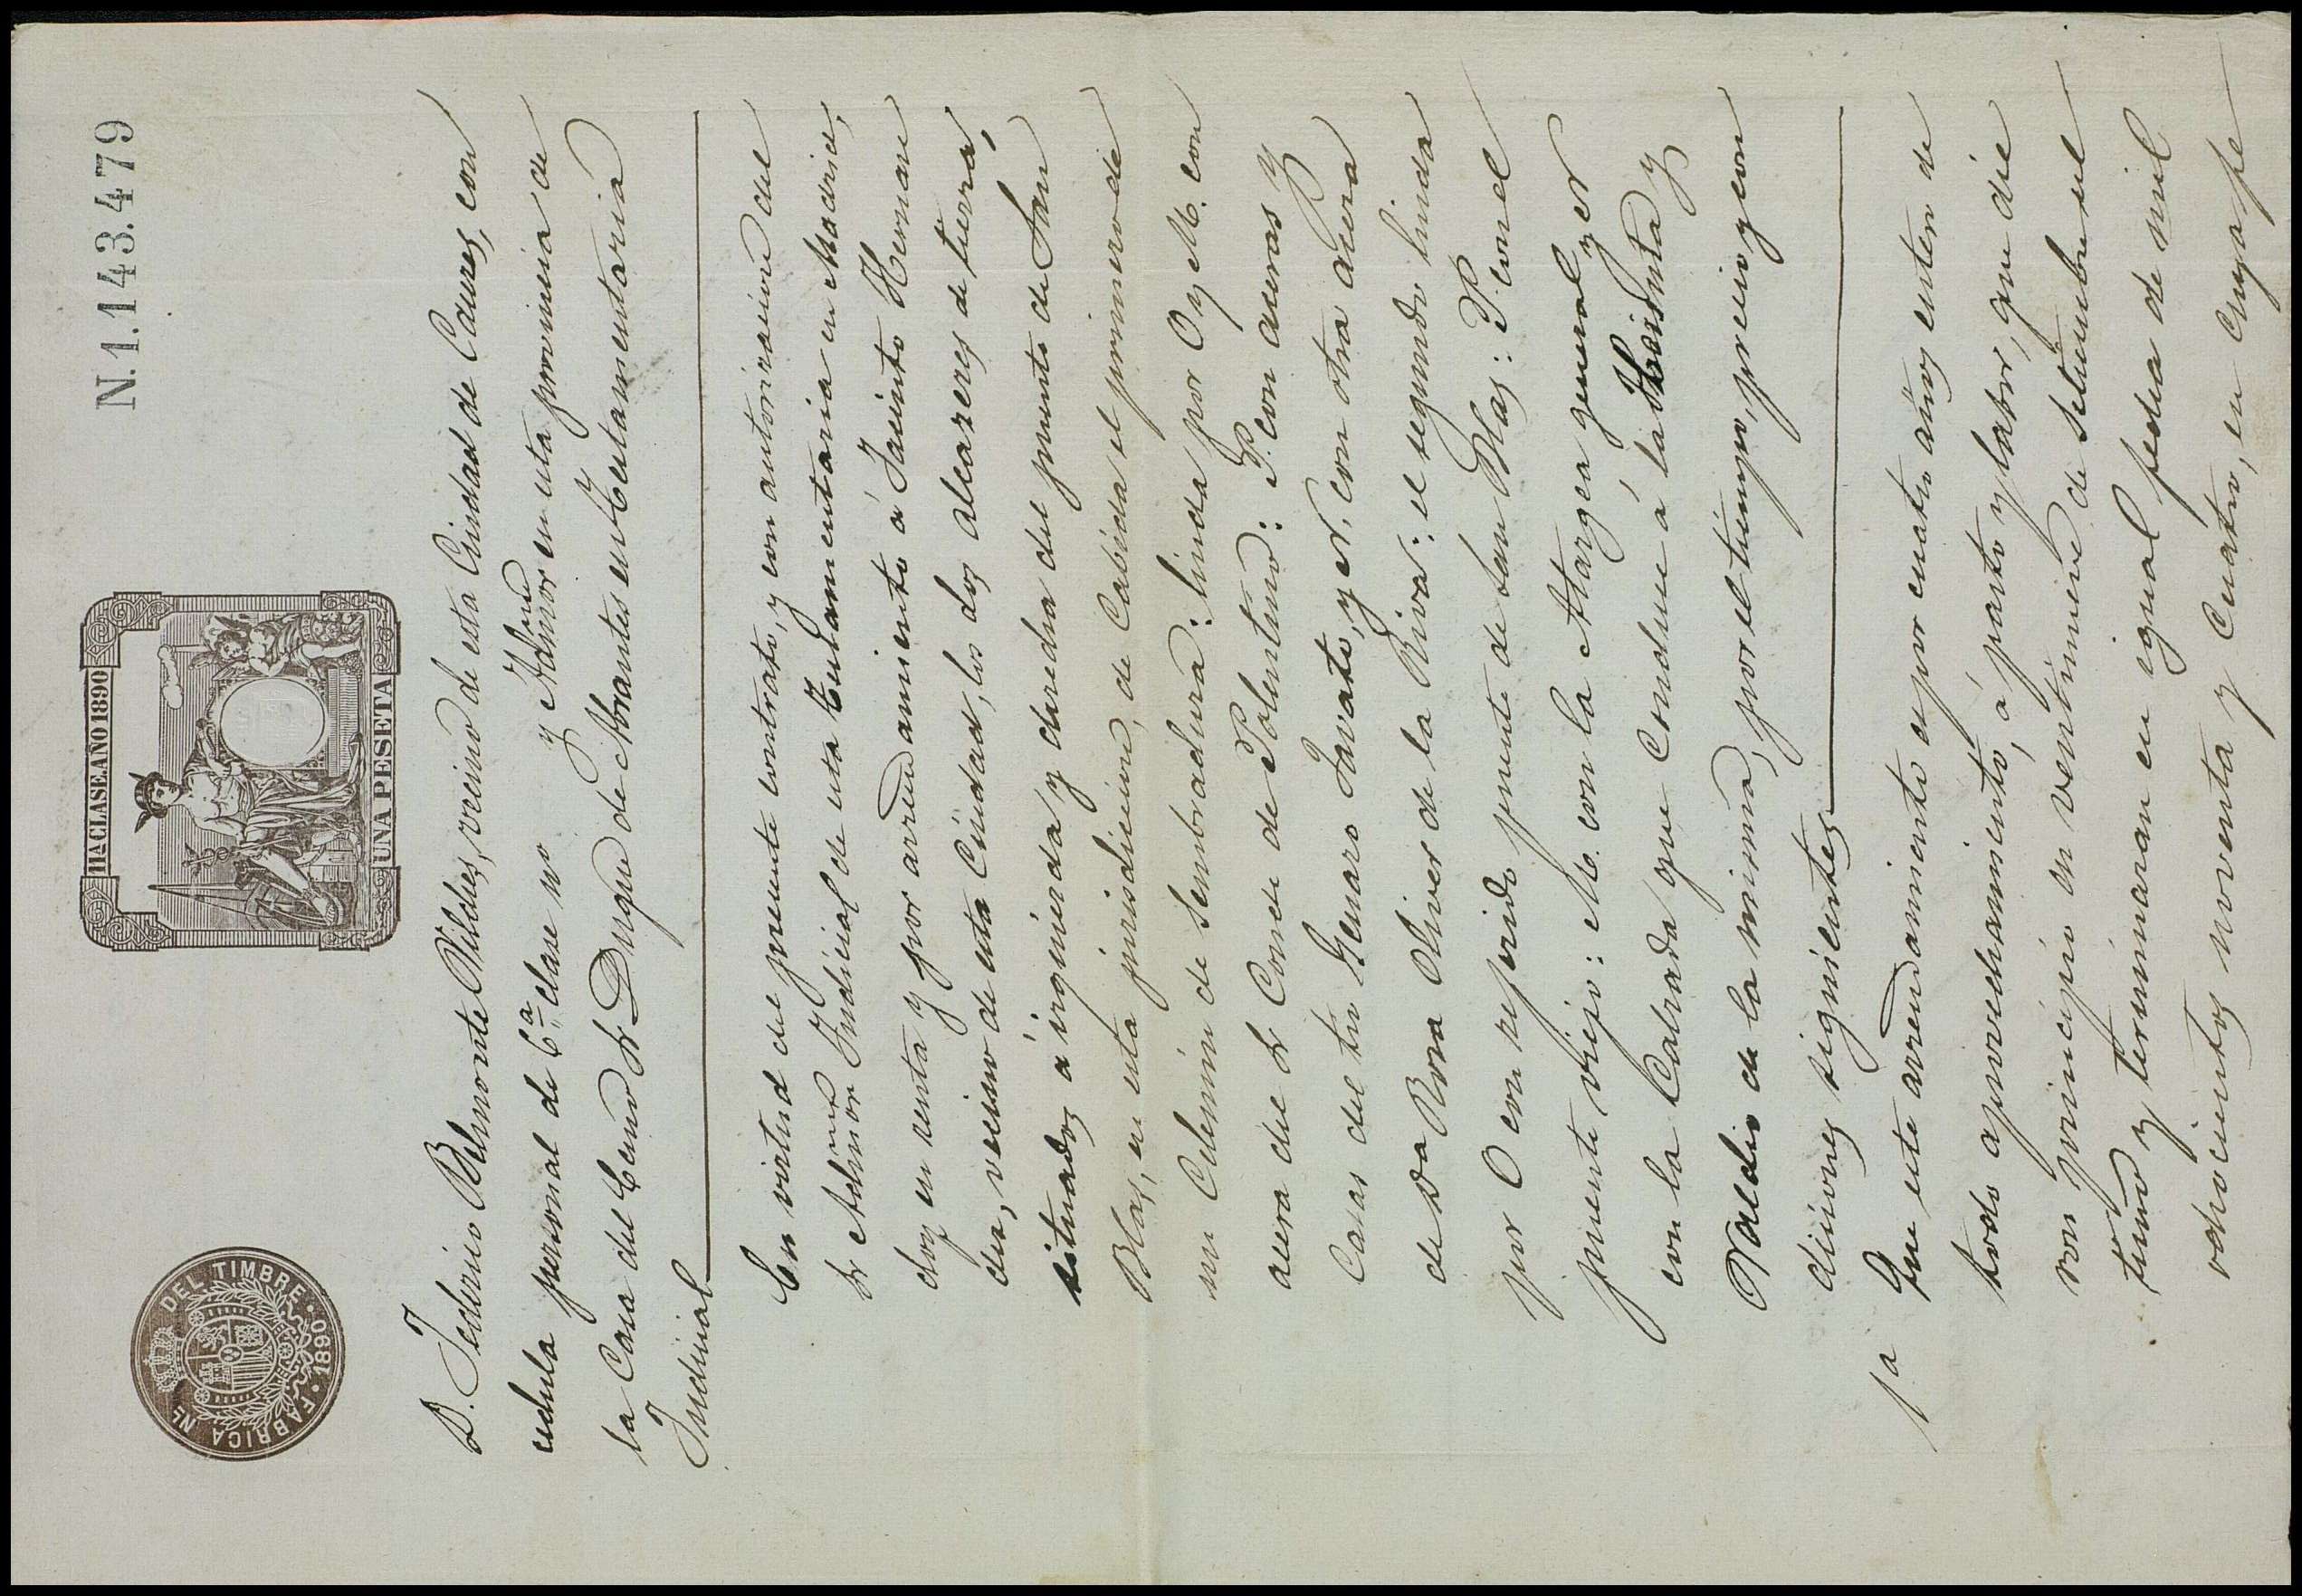 N.1.143.479
11ª CLASE. AÑO 1890
UNA PESETA
DEL TIMBRE · 1890 · FABRICA NL
D. Federico Belmonte Vildes, vecino de esta Ciudad de Cacerez, con
cedula personal de 6ª clase nº y Admor en esta provincia de
la Casa del Ecmo Sr Duque de Abrantes en testamentaria
Judicial
En virtud del presente contrato, y con autorizacion del
Sr Admor Judicial de esta testamentaria en Madrid,
doy en renta y por arrendamiento á Jacinto Hernan
dez, vecino de esta Ciudad, los dos alcazeres de tierra,
situados á izquierda y derecha del puente de San
Blas, en esta jurisdiccion, de Cabida el primero de
un Celemin de Sembradura: linda por O y M. con
acera del Sr Conde de Polentinos: P. con aceras y
Casas del tio Genaro Javato, y N. con otra acera
de Dª Rosa Oliver de la Riva: el segundo linda
por O con referido puente de San Blas: P. con el
puente viejo: M. con la Atargea general, y N
con la Calzada que Conduce á la Hacienda y
Valdio de la misma, por el tiempo, precio y con
diciones siguientes
1ª Que este arrendamiento es por cuatro años enteros de
todo aprovechamiento, á pasto y labor, que die
ron principio en veintinueve de setiembre del
y terminaran en igual fecha de mil
ochocientos noventa y Cuatro, en Cuya fe